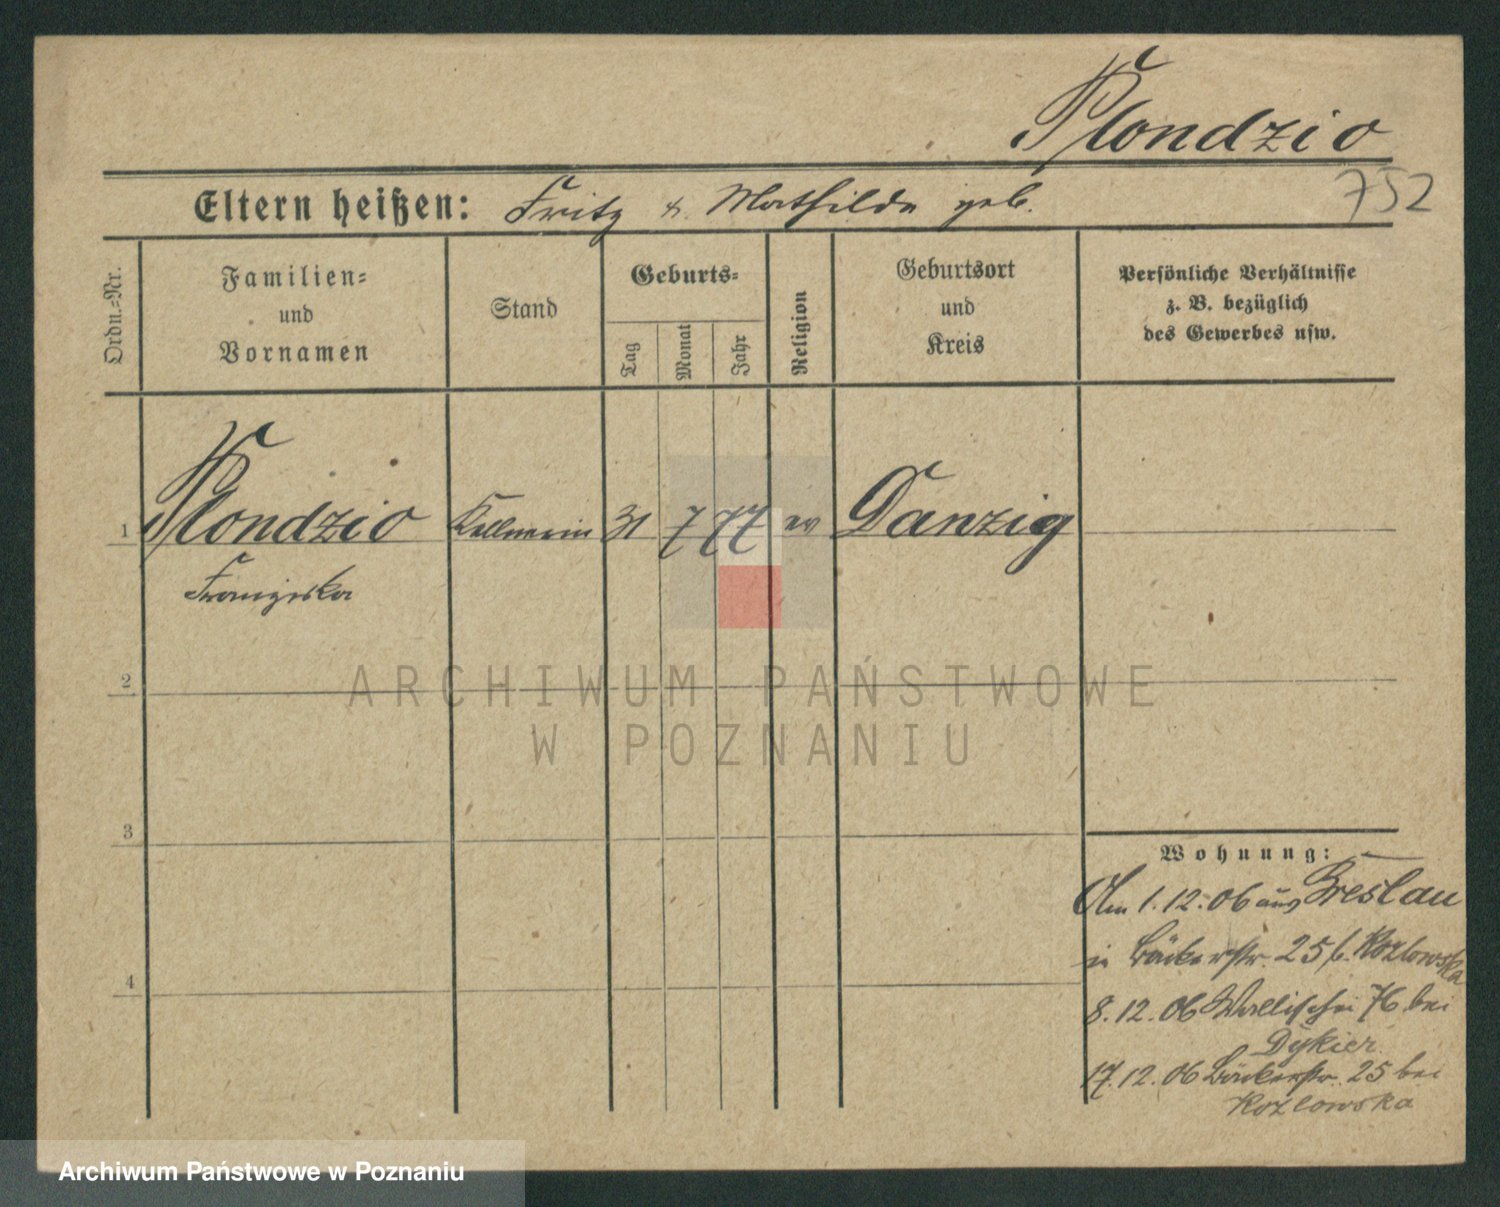 Plondzio
752
Eltern heißen: Fritz u. Mathilde geb.
Ordn.-Nr.
Familien- und Vornamen
Stand
Geburts-
Tag
Monat
Jahr
Religion
Geburtsort und Kreis
Persönliche Verhältnisse
z. B. bezüglich
des Gewerbes usw.
1 Plondzio Kellnerin 31 7 77 ev Danzig
Franziska
2
3
4
Wohnung:
Am 1.12.06 aus Breslau
in Bäckerstr. 25 b. Kozlowska
8.12.06 Wallischei 76 bei
Dykier
17.12.06 Bäckerstr. 25 bei
Kozlowska
ARCHIWUM PAŃSTWOWE
W POZNANIU
Archiwum Państwowe w Poznaniu